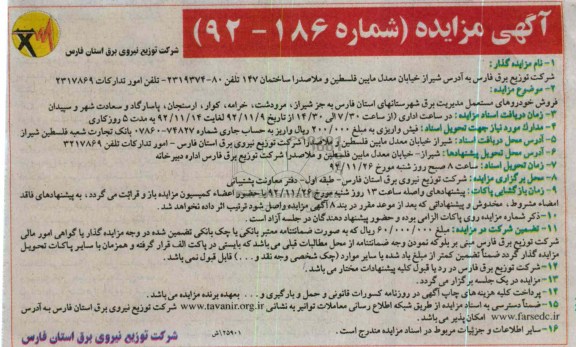 آگهی مزایده (شماره ۱۸۶ - ۹۲)
شرکت توزیع نیروی برق استان فارس
۱- نام مزایده گذار:
شرکت توزیع برق فارس به آدرس شیراز خیابان معدل مابین فلسطین و ملاصدرا ساختمان ۱۴۷ تلفن ۸۰-۲۳۱۹۳۷۴- تلفن امور تدارکات ۲۳۱۷۸۶۹
۲- موضوع مزایده:
فروش خودروهای مستعمل مدیریت برق شهرستانهای استان فارس به جز شیراز، مرودشت، خرامه، کوار، ارسنجان، پاسارگاد و سعادت شهر و سپیدان
۳- زمان دریافت اسناد مزایده: در ساعت اداری (از ساعت ۷/۳۰ الی ۱۴/۳۰ از تاریخ ۹۲/۱۱/۹ لغایت ۹۲/۱۱/۱۴ به مدت ۵ روزکاری
۴- مدارک مورد نیاز جهت تحویل اسناد: فیش واریزی به مبلغ ۲۰۰/۰۰۰ ریال واریز به حساب جاری شماره ۰۷۸۶۰۰۷۴۸۲۷ بانک تجارت شعبه فلسطین شیراز
۵- آدرس محل دریافت اسناد: شیراز خیابان معدل مابین فلسطین و ملاصدرا شرکت توزیع نیروی برق استان فارس - امور تدارکات تلفن ۳۲۱۷۸۶۹
۶- آدرس محل تحویل پیشنهادها: شیراز- خیابان معدل مابین فلسطین و ملاصدرا شرکت توزیع برق فارس اداره دبیرخانه
۷- زمان تحویل اسناد: ساعت ۸ صبح روز شنبه مورخ ۹۲/۱۱/۲۶
۸- محل برگزاری مزایده: شرکت توزیع نیروی برق استان فارس- طبقه اول- دفتر معاونت پشتیبانی
۹- زمان بازگشایی پاکات: پیشنهادهای واصله ساعت ۱۳ روز شنبه مورخ ۹۲/۱۱/۲۶ با حضور اعضاء کمیسیون مزایده باز و قرائت می گردد، به پیشنهادهای فاقد
امضاء مشروط، مخدوش و پیشنهاداتی که بعد از موعد مقرر در بند ۸ آگهی مزایده واصل شود ترتیب اثر داده نخواهد شد.
۱۰- ذکر شماره مزایده روی پاکات الزامی بوده و حضور پیشنهاد دهندگان در جلسه آزاد است.
۱۱- تضمین شرکت در مزایده: مبلغ ۶۰/۰۰۰/۰۰۰ ریال که به صورت ضمانتنامه معتبر بانکی یا چک بانکی تضمین شده در وجه مزایده گذار یا گواهی امور مالی
شرکت توزیع برق فارس مبنی بر بلوکه نمودن وجه ضمانتنامه از محل مطالبات قبلی می باشد که بایستی در پاکت الف قرار گرفته و همزمان با سایر پاکات تحویل
مزایده گذار گردد ضمناً تضمین کمتر از مبلغ یاد شده یا سایر موارد (چک شخصی وجه نقد و ...) قابل قبول نمی باشد.
۱۲- شرکت توزیع برق فارس در رد یا قبول کلیه پیشنهادات مختار می باشد.
۱۳- مزایده در یک جلسه برگزار می گردد.
۱۴- پرداخت کلیه هزینه های چاپ آگهی در روزنامه کسورات قانونی و حمل و بارگیری و ... بعهده برنده مزایده می باشد.
۱۵- ضمناً دسترسی به اسناد مزایده از طریق شبکه اطلاع رسانی معاملات توانیر به نشانی www.tavanir.org.ir و شرکت توزیع نیروی برق استان فارس به آدرس
www.farsedc.ir امکان پذیر می باشد.
۱۶- سایر اطلاعات و جزئیات مربوط در اسناد مزایده مندرج است.
۱۲۵۹۰۱/ش
شرکت توزیع نیروی برق استان فارس